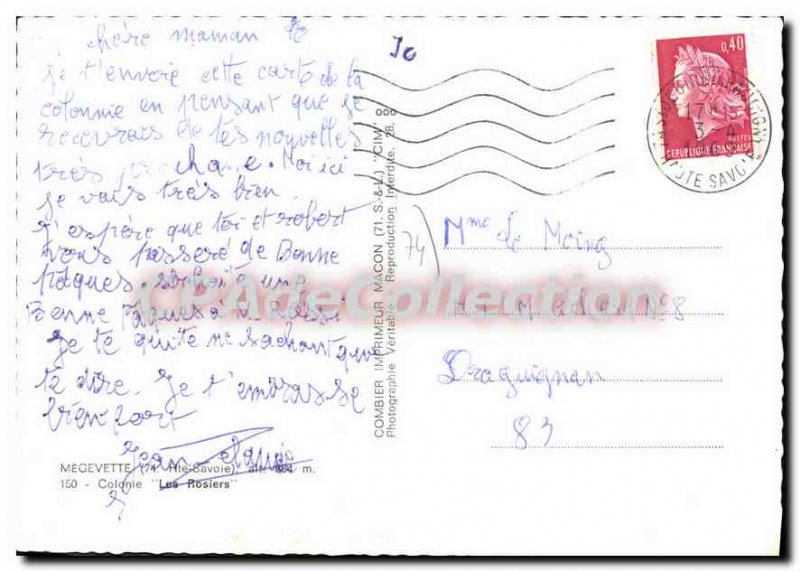 chère maman
Je t'envoie cette carte de ta
colonnie en pensant que je
recevrais de tes nouvelles
très prochane. Moi ici
je vais très bien.
J'espère que toi et robert
vous passeré de Bonne
pâques. à une
Bonne Pâques à
Je te quitte ne sachant que
te dire. Je t'embrasse
bien fort
Jean
MEGEVETTE (74. Hte-Savoie). alt. m.
150 - Colonie "Les Rosiers"
COMBIER IMPRIMEUR MACON (71. S.-&-L.) "CIM"
Photographie Véritable - Reproduction Interdite. 28.
Jc
74
0,40
POSTES
REPUBLIQUE FRANÇAISE
17H
3 - 4
HTE SAVOIE
Mme de
N°8
Draguignan
83
CPAdeCollection